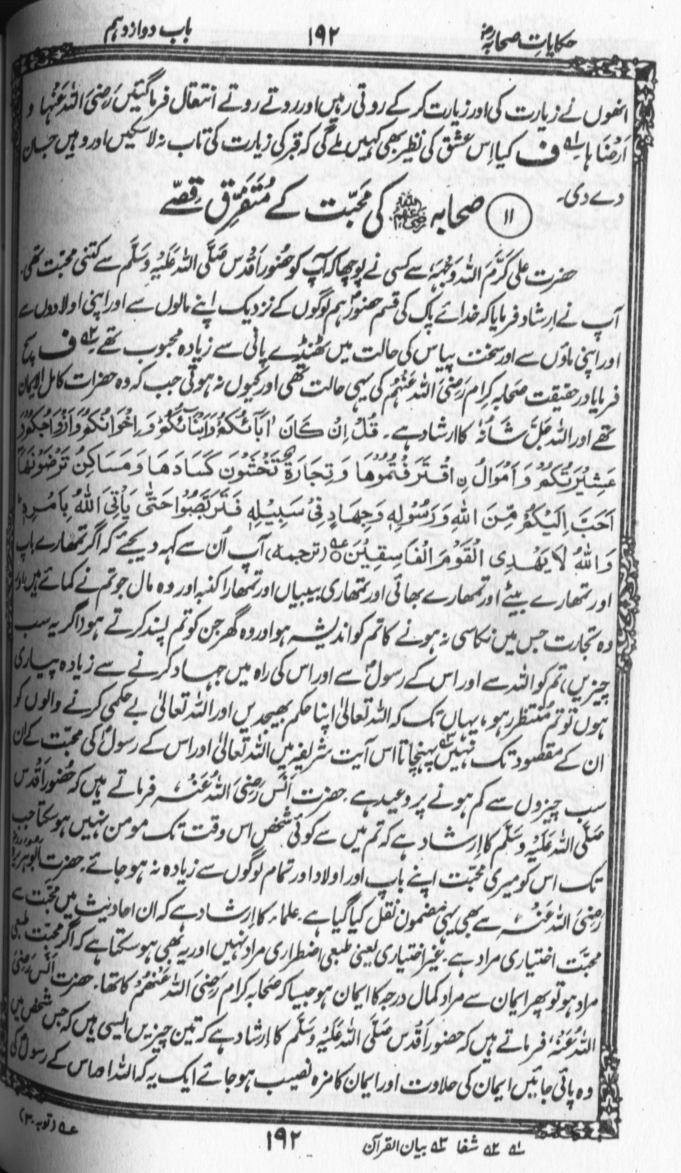 حکایاتِ صحابہؓ ۱۹۲ باب دوازدہم
انھوں نے زیارت کی اور زیارت کر کے روتی رہیں اور روتے روتے انتقال فرما گئیں رَضِیَ اللہُ عَنْہَا وَ
اَرْضَاہَا ؎۱ ف کیا اِس عشق کی نظیر بھی کہیں ملے گی کہ قبر کی زیارت کی تاب نہ لا سکیں اور وہیں جان
دے دی۔
۱۱ صحابہ ؓ کی محبّت کے مُتَفَرِّق قِصّے
حضرت علی کَرَّمَ اللہُ وَجْہَہٗ سے کسی نے پوچھا کہ آپ کو حضورِ اَقْدَس صَلَّی اللہُ عَلَیْہِ وَسَلَّم سے کتنی محبت تھی۔
آپ نے ارشاد فرمایا کہ خدائے پاک کی قسم حضورؐ ہم لوگوں کے نزدیک اپنے مالوں سے اور اپنی اولادوں سے
اور اپنی ماؤں سے اور سخت پیاس کی حالت میں ٹھنڈے پانی سے زیادہ محبوب تھے ؎۲ ف سچ
فرمایا درحقیقت صحابہ کرام رَضِیَ اللہُ عَنْہُم کی یہی حالت تھی اور کیوں نہ ہوتی جب کہ وہ حضرات کامل الایمان
تھے اور اللہ جَلَّ شَانُہٗ کا ارشاد ہے۔ قُلْ اِنْ کَانَ اٰبَآئُکُمْ وَاَبْنَآئُکُمْ وَ اِخْوَانُکُمْ وَاَزْوَاجُکُمْ وَ
عَشِیْرَتُکُمْ وَ اَمْوَالُ نِ اقْتَرَفْتُمُوْھَا وَ تِجَارَۃٌ تَخْشَوْنَ کَسَادَھَا وَ مَسَاکِنُ تَرْضَوْنَھَا
اَحَبَّ اِلَیْکُمْ مِّنَ اللہِ وَ رَسُوْلِہٖ وَجِھَادٍ فِیْ سَبِیْلِہٖ فَتَرَبَّصُوْا حَتّٰی یَاْتِیَ اللہُ بِاَمْرِہٖ ؕ
وَاللہُ لَا یَھْدِی الْقَوْمَ الْفَاسِقِیْنَ ؎عہ (ترجمہ) آپ اُن سے کہہ دیجئے کہ اگر تمھارے باپ
اور تمھارے بیٹے اور تمھارے بھائی اور تمھاری بیبیاں اور تمھارا کنبہ اور وہ مال جو تم نے کمائے ہیں اور
وہ تجارت جس میں نکاسی نہ ہونے کا تم کو اندیشہ ہو اور وہ گھر جن کو تم پسند کرتے ہو (اگر یہ سب
چیزیں) تم کو اللہ سے اور اس کے رسولؐ سے اور اس کی راہ میں جہاد کرنے سے زیادہ پیاری
ہوں تو تم مُنْتَظِر رہو، یہاں تک کہ اللہ تعالیٰ اپنا حکم بھیجدیں اور اللہ تعالیٰ بے حکمی کرنے والوں کو
ان کے مقصود تک نہیں پہنچاتا ؎۳ اس آیتِ شریفہ میں اللہ تعالیٰ اور اس کے رسولؐ کی محبت کے ان
سب چیزوں سے کم ہونے پر وعید ہے۔ حضرت اَنَس رَضِیَ اللہُ عَنْہُ فرماتے ہیں کہ حضورِ اَقْدَس
صَلَّی اللہُ عَلَیْہِ وَسَلَّم کا ارشاد ہے کہ تم میں سے کوئی شخص اس وقت تک مومن نہیں ہو سکتا جب
تک اس کو میری محبت اپنے باپ اور اولاد اور تمام لوگوں سے زیادہ نہ ہو جائے۔ حضرت ابوہریرہ
رَضِیَ اللہُ عَنْہُ سے بھی یہی مضمون نقل کیا گیا ہے۔ علماء کا ارشاد ہے کہ ان احادیث میں محبت سے
محبت اختیاری مراد ہے۔ غیر اختیاری یعنی طبعی اضطراری مراد نہیں اور یہ بھی ہو سکتا ہے کہ اگر محبت طبعی
مراد ہو تو پھر ایمان سے مراد کمال درجہ کا ایمان ہو جیسا کہ صحابہ کرام رَضِیَ اللہُ عَنْہُم کا تھا۔ حضرت اَنَس رَضِیَ
اللہُ عَنْہُ فرماتے ہیں کہ حضورِ اَقْدَس صَلَّی اللہُ عَلَیْہِ وَسَلَّم کا ارشاد ہے کہ تین چیزیں ایسی ہیں کہ جس شخص میں
وہ پائی جائیں ایمان کی حلاوت اور ایمان کا مزہ نصیب ہو جائے ایک یہ کہ اللہ اور اس کے رسولؐ کی
؎۱ ؎۲ شفا ؎۳ بیان القرآن ۱۹۲ ؎عہ (توبہ ۳۰)